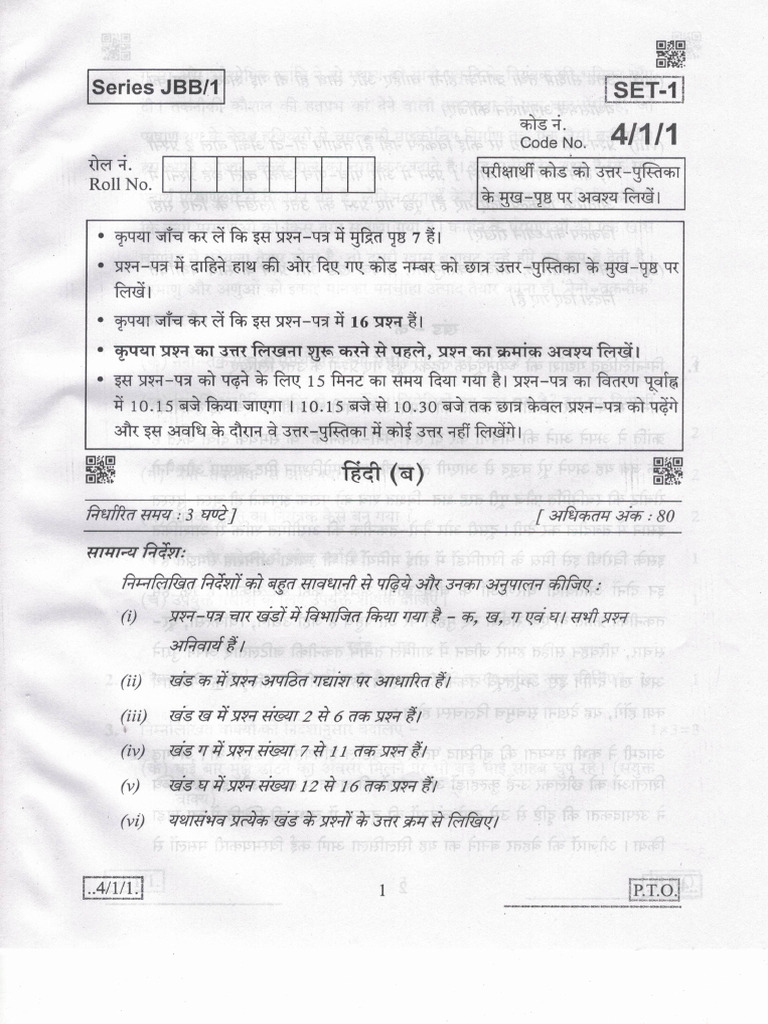 Series JBB/1
SET-1
कोड नं.
Code No. 4/1/1
रोल नं.
Roll No.
परीक्षार्थी कोड को उत्तर-पुस्तिका
के मुख-पृष्ठ पर अवश्य लिखें।
• कृपया जाँच कर लें कि इस प्रश्न-पत्र में मुद्रित पृष्ठ 7 हैं।
• प्रश्न-पत्र में दाहिने हाथ की ओर दिए गए कोड नम्बर को छात्र उत्तर-पुस्तिका के मुख-पृष्ठ पर
लिखें।
• कृपया जाँच कर लें कि इस प्रश्न-पत्र में 16 प्रश्न हैं।
• कृपया प्रश्न का उत्तर लिखना शुरू करने से पहले, प्रश्न का क्रमांक अवश्य लिखें।
• इस प्रश्न-पत्र को पढ़ने के लिए 15 मिनट का समय दिया गया है। प्रश्न-पत्र का वितरण पूर्वाह्न
में 10.15 बजे किया जाएगा। 10.15 बजे से 10.30 बजे तक छात्र केवल प्रश्न-पत्र को पढ़ेंगे
और इस अवधि के दौरान वे उत्तर-पुस्तिका में कोई उत्तर नहीं लिखेंगे।
हिंदी (ब)
निर्धारित समय : 3 घण्टे]
[ अधिकतम अंक : 80
सामान्य निर्देश:
निम्नलिखित निर्देशों को बहुत सावधानी से पढ़िये और उनका अनुपालन कीजिए :
(i) प्रश्न-पत्र चार खंडों में विभाजित किया गया है – क, ख, ग एवं घ। सभी प्रश्न
अनिवार्य हैं।
(ii) खंड क में प्रश्न अपठित गद्यांश पर आधारित हैं।
(iii) खंड ख में प्रश्न संख्या 2 से 6 तक प्रश्न हैं।
(iv) खंड ग में प्रश्न संख्या 7 से 11 तक प्रश्न हैं।
(v) खंड घ में प्रश्न संख्या 12 से 16 तक प्रश्न हैं।
(vi) यथासंभव प्रत्येक खंड के प्रश्नों के उत्तर क्रम से लिखिए।
..4/1/1.
1
P.T.O.